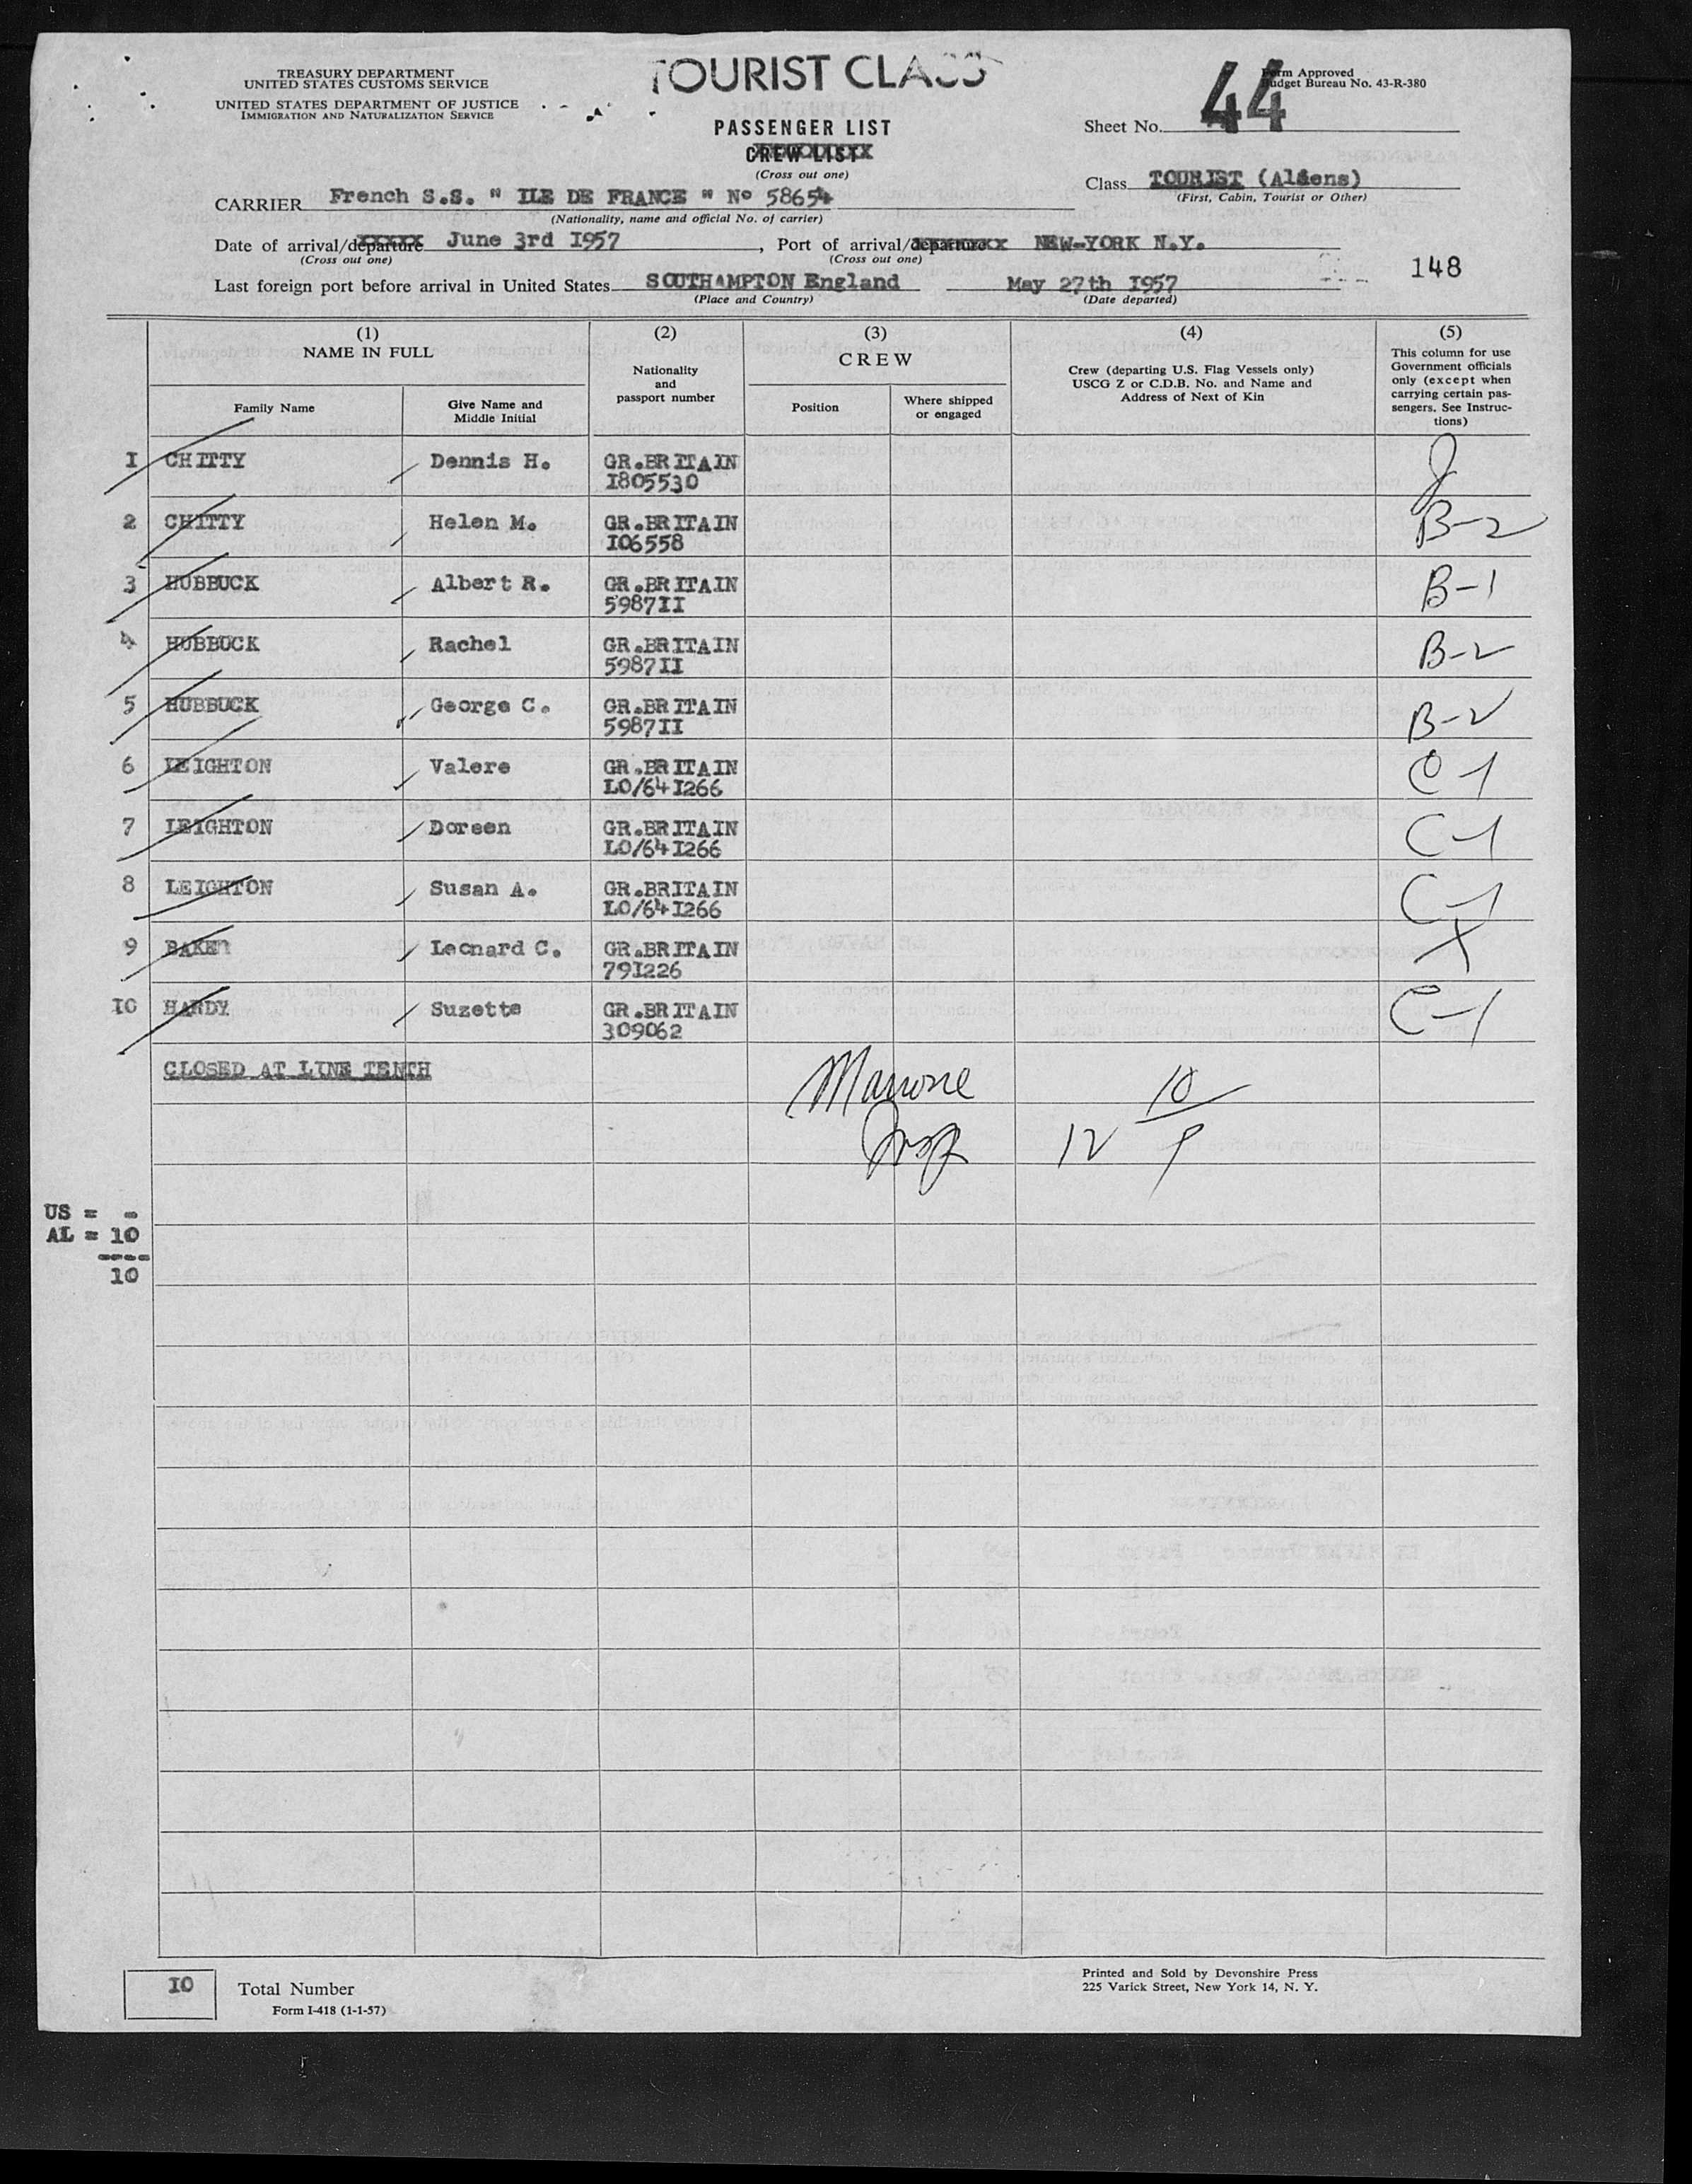 TREASURY DEPARTMENT
UNITED STATES CUSTOMS SERVICE
UNITED STATES DEPARTMENT OF JUSTICE
IMMIGRATION AND NATURALIZATION SERVICE
TOURIST CLASS
PASSENGER LIST
CREW LIST
(Cross out one)
44
Form Approved
Budget Bureau No. 43-R-380
Sheet No.
Class TOURIST (Aliens)
(First, Cabin, Tourist or Other)
CARRIER French S.S. " ILE DE FRANCE " No 58654
(Nationality, name and official No. of carrier)
Date of arrival/departure June 3rd 1957, Port of arrival/departure NEW-YORK N.Y.
(Cross out one) (Cross out one)
148
Last foreign port before arrival in United States SOUTHAMPTON England May 27th 1957
(Place and Country) (Date departed)
(1) NAME IN FULL
Family Name
Give Name and Middle Initial
(2)
Nationality and passport number
(3)
CREW
Position
Where shipped or engaged
(4)
Crew (departing U.S. Flag Vessels only)
USCG Z or C.D.B. No. and Name and
Address of Next of Kin
(5)
This column for use
Government officials
only (except when
carrying certain pas-
sengers. See Instruc-
tions)
I CHITTY Dennis H. GR.BRITAIN
I805530
2 CHITTY Helen M. GR.BRITAIN B-2
I06558
3 HUBBUCK Albert R. GR.BRITAIN B-1
5987II
4 HUBBUCK Rachel GR.BRITAIN B-2
5987II
5 HUBBUCK George C. GR.BRITAIN B-2
5987II
6 LEIGHTON Valere GR.BRITAIN C-1
LO/64I266
7 LEIGHTON Doreen GR.BRITAIN C-1
LO/64I266
8 LEIGHTON Susan A. GR.BRITAIN C-1
LO/64I266
9 BAKER Leonard C. GR.BRITAIN X
79I226
I0 HARDY Suzette GR.BRITAIN C-1
309062
CLOSED AT LINE TENTH
10
12
US = -
AL = 10
----
10
I0
Total Number
Form I-418 (1-1-57)
Printed and Sold by Devonshire Press
225 Varick Street, New York 14, N. Y.